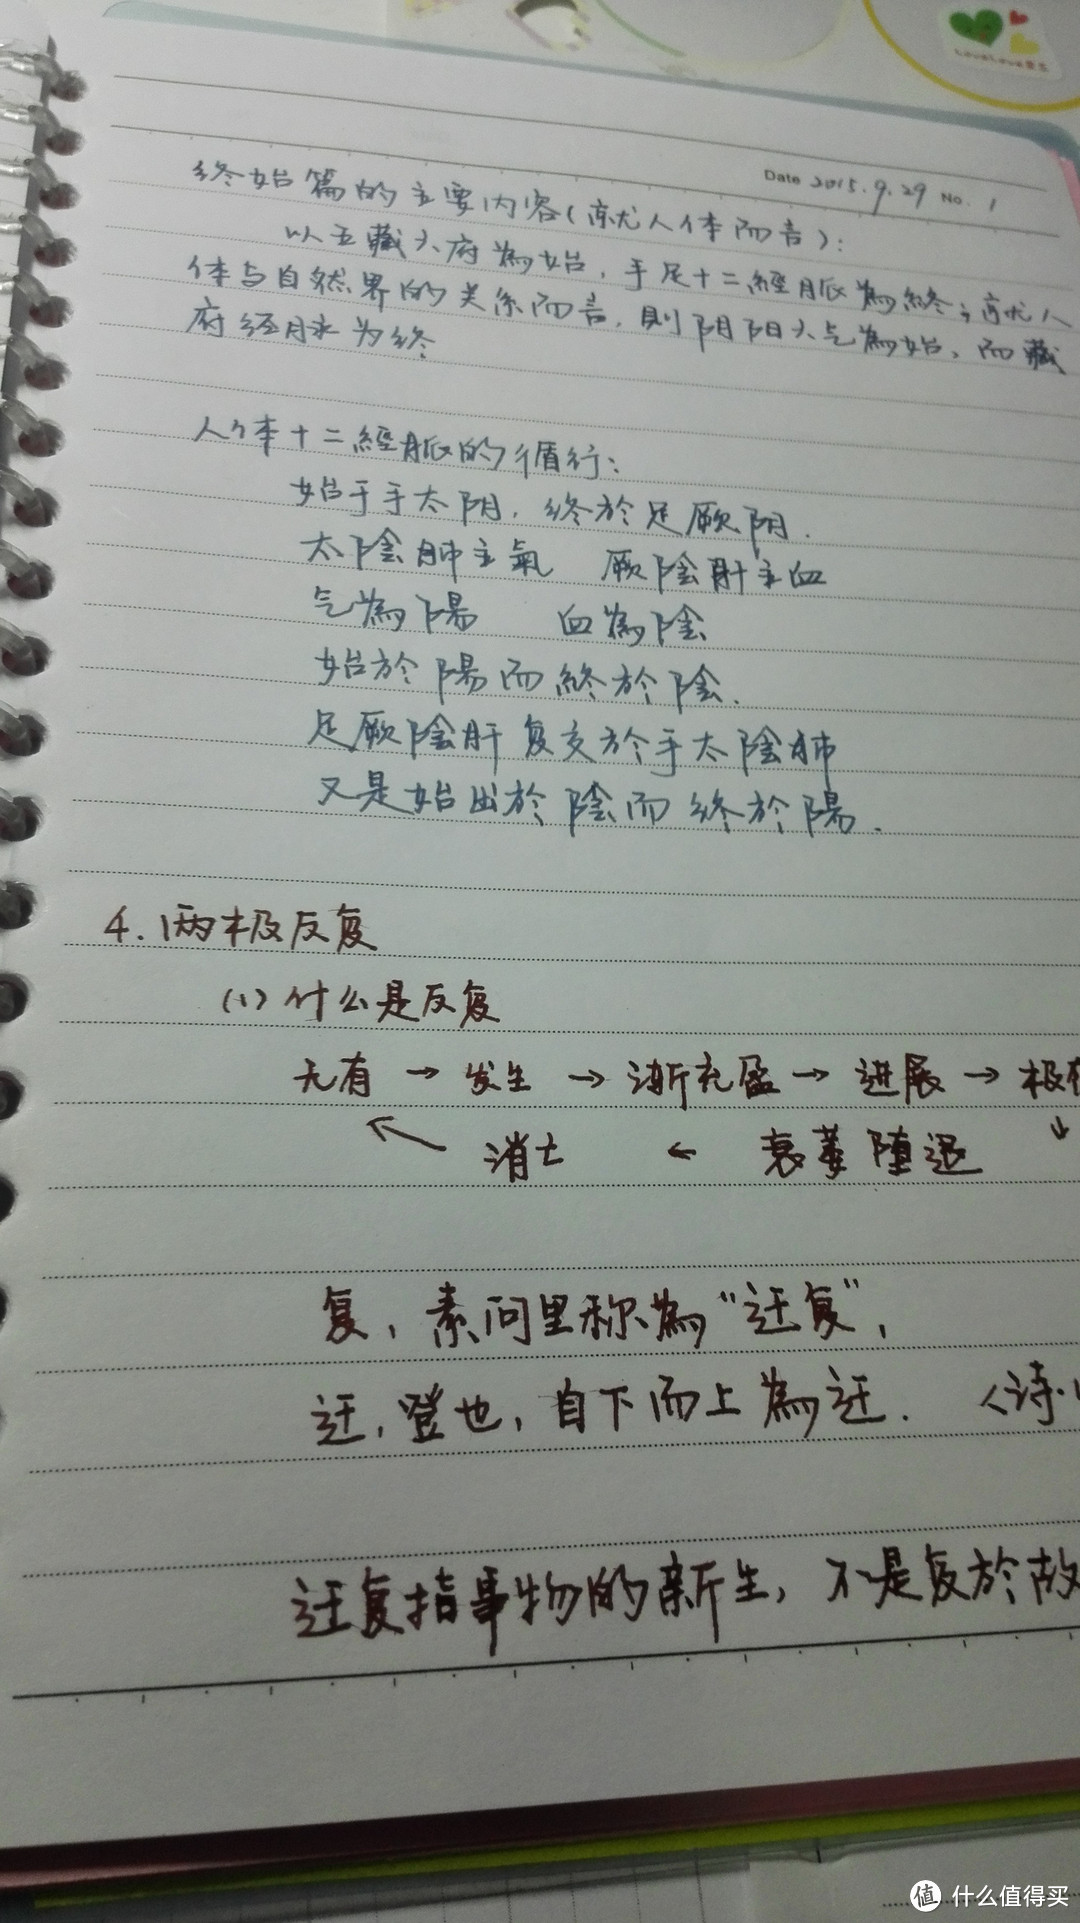 LoveLove
Date 2015.9.29 No. 1
终始篇的主要内容(就人体而言):
以五藏六府為始，手足十二經脈為終；就人
体与自然界的关系而言，則阴阳六气為始，而藏
府经脉为终
人体十二經脈的循行：
始于手太阴，终於足厥阴.
太陰肺主氣 厥陰肝主血
气為陽 血為陰
始於陽而終於陰.
足厥陰肝复交於手太陰肺
又是始出於陰而终於陽.
4.两极反复
(1)什么是反复
无有→发生→渐充盈→进展→极
↖ 消亡 ← 衰萎随退 ↓
复，素问里称為“迁复”，
迁，登也，自下而上為迁. 〈诗·
迁复指事物的新生，不是复於故
值 什么值得买